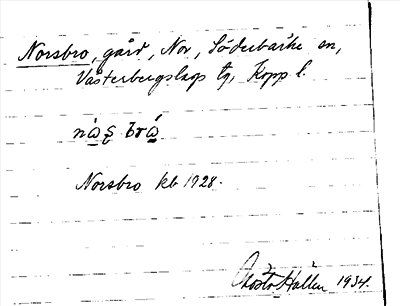 Norsbro, gård, Nor, Söderbärke sn,
Västerbergslags tg, Kopp l.
nås̨ brå
Norsbro kb 1928.
Gösta Hallén 1934.